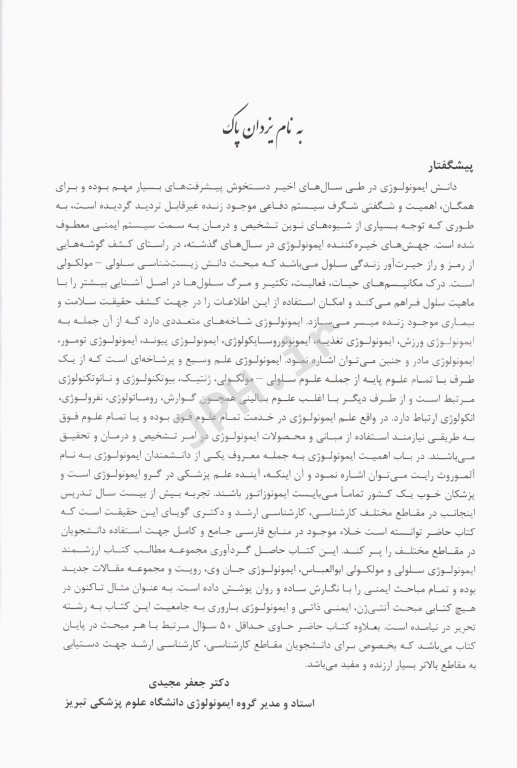 به نام یزدان پاک
پیشگفتار
دانش ایمونولوژی در طی سال‌های اخیر دستخوش پیشرفت‌های بسیار مهم بوده و برای
همگان، اهمیت و شگفتی شگرف سیستم دفاعی موجود زنده غیرقابل تردید گردیده است، به
طوری که توجه بسیاری از شیوه‌های نوین تشخیص و درمان به سمت سیستم ایمنی معطوف
شده است. جهش‌های خیره‌کننده ایمونولوژی در سال‌های گذشته، در راستای کشف گوشه‌هایی
از رمز و راز حیرت‌آور زندگی سلول می‌باشد که مبحث دانش زیست‌شناسی سلولی – مولکولی
است. درک مکانیسم‌های حیات، فعالیت، تکثیر و مرگ سلول‌ها در اصل آشنایی بیشتر را با
ماهیت سلول فراهم می‌کند و امکان استفاده از این اطلاعات را در جهت کشف حقیقت سلامت و
بیماری موجود زنده میسر می‌سازد. ایمونولوژی شاخه‌های متعددی دارد که از آن جمله به
ایمونولوژی ورزش، ایمونولوژی تغذیه، ایمونونوروسایکولوژی، ایمونولوژی پیوند، ایمونولوژی تومور،
ایمونولوژی مادر و جنین می‌توان اشاره نمود. ایمونولوژی علم وسیع و پرشاخه‌ای است که از یک
طرف با تمام علوم پایه از جمله علوم سلولی – مولکولی، ژنتیک، بیوتکنولوژی و نانوتکنولوژی
مرتبط است و از طرف دیگر با اغلب علوم بالینی همچون گوارش، روماتولوژی، نفرولوژی،
انکولوژی ارتباط دارد. در واقع علم ایمونولوژی در خدمت تمام علوم فوق بوده و یا تمام علوم فوق
به طریقی نیازمند استفاده از مبانی و محصولات ایمونولوژی در امر تشخیص و درمان و تحقیق
می‌باشند. در باب اهمیت ایمونولوژی به جمله معروف یکی از دانشمندان ایمونولوژی به نام
آلموروث رایت می‌توان اشاره نمود و آن اینکه، آینده علم پزشکی در گرو ایمونولوژی است و
پزشکان خوب یک کشور تماماً می‌بایست ایمونوزاتور باشند. تجربه بیش از بیست سال تدریس
اینجانب در مقاطع مختلف کارشناسی، کارشناسی ارشد و دکتری گویای این حقیقت است که
کتاب حاضر توانسته است خلاء موجود در منابع فارسی جامع و کامل جهت استفاده دانشجویان
در مقاطع مختلف را پر کند. این کتاب حاصل گردآوری مجموعه مطالب کتاب ارزشمند
ایمونولوژی سلولی و مولکولی ابوالعباس، ایمونولوژی جان وی، رویت و مجموعه مقالات جدید
بوده و تمام مباحث ایمنی را با نگارش ساده و روان پوشش داده است. به عنوان مثال تاکنون در
هیچ کتابی مبحث آنتی‌ژن، ایمنی ذاتی و ایمونولوژی باروری به جامعیت این کتاب به رشته
تحریر در نیامده است. بعلاوه کتاب حاضر حاوی حداقل ۵۰ سؤال مرتبط با هر مبحث در پایان
کتاب می‌باشد که بخصوص برای دانشجویان مقاطع کارشناسی، کارشناسی ارشد جهت دستیابی
به مقاطع بالاتر بسیار ارزنده و مفید می‌باشد.
دکتر جعفر مجیدی
استاد و مدیر گروه ایمونولوژی دانشگاه علوم پزشکی تبریز
JPH.ir